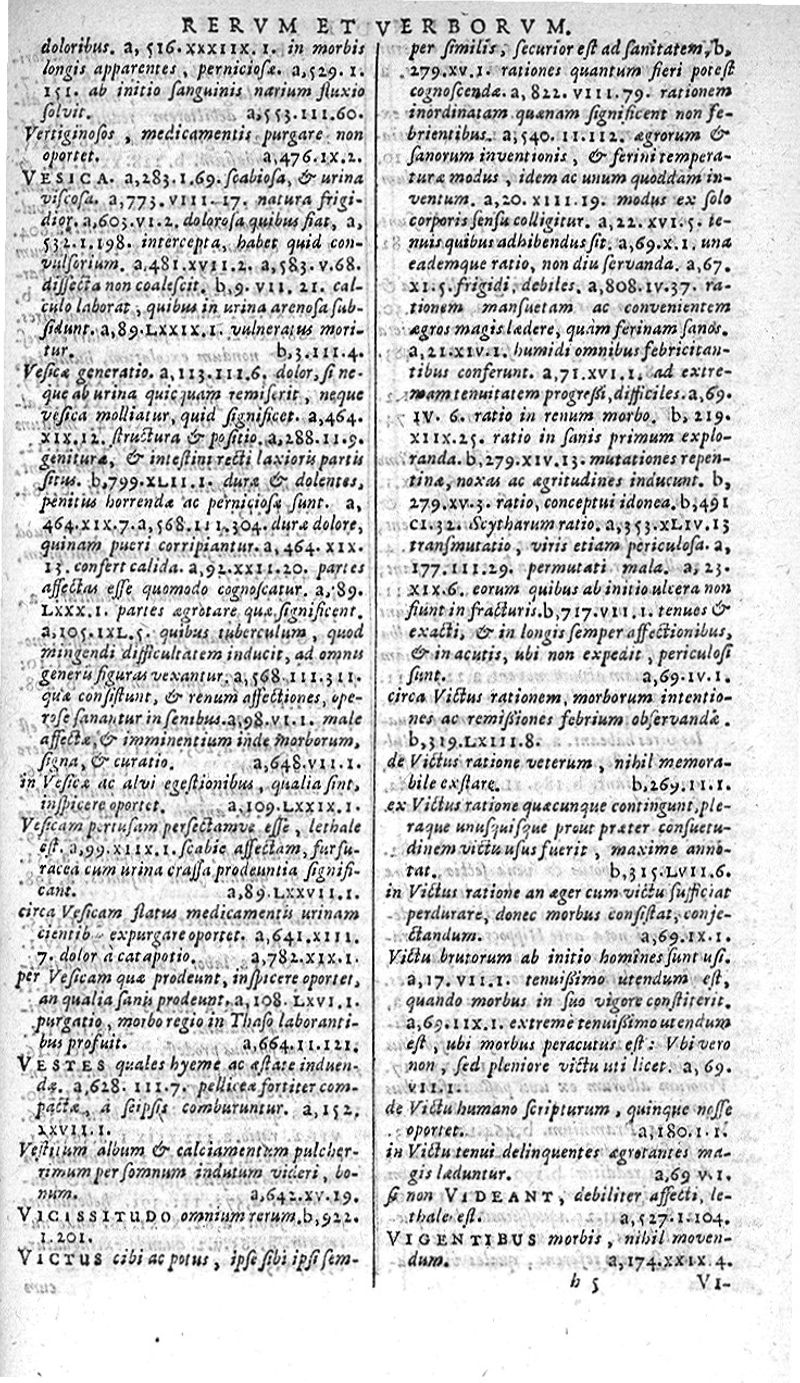 RERVM ET VERBORVM.
doloribus. a, 516. XXXIIX. 1. in morbis
longis apparentes, perniciosæ. a, 529. 1.
151. ab initio sanguinis narium fluxio
solvit. a, 553. III. 60.
Vertiginosos, medicamentis purgare non
oportet. a, 476. IX. 2.
VESICA. a, 283. 1. 69. scabiosa, & urina
viscosa. a, 773. VIII. 17. natura frigi-
dior. a, 603. VI. 2. dolorosa quibus fiat, a,
532. 1. 198. intercepta, habet quid con-
vulsorium. a, 481. XVII. 2. a, 583. V. 68.
dissecta non coalescit. b, 9. VII. 21. cal-
culo laborat, quibus in urina arenosa sub-
sidunt. a, 89. LXXIX. 1. vulneratus mori-
tur. b, 3. III. 4.
Vesicæ generatio. a, 113. III. 6. dolor, si ne-
que ab urina quicquam remiserit, neque
vesica molliatur, quid significet. a, 464.
XIX. 12. structura & positio. a, 288. II. 9.
genituræ, & intestini recti laxioris partis
situs. b, 799. XLII. 1. duræ & dolentes,
penitus horrendæ ac perniciosæ sunt. a,
464. XIX. 7. a, 568. III. 304. duræ dolore,
quinam pueri corripiantur. a, 464. XIX.
13. confert calida. a, 92. XXII. 20. partes
affectas esse quomodo cognoscatur. a, 89.
LXXX. 1. partes ægrotare quæ significent.
a, 105. IXL. 5. quibus tuberculum, quod
mingendi difficultatem inducit, ad omnis
generis figuras vexantur. a, 568. III. 311.
quæ consistunt, & renum affectiones, ope-
rose sanantur in senibus. a, 98. VI. 1. male
affectæ, & imminentium inde morborum,
signa, & curatio. a, 648. VII. 1.
in Vesicæ ac alvi egestionibus, qualia sint,
inspicere oportet. a, 109. LXXIX. 1.
Vesicam pertusam persectamve esse, lethale
est. a, 99. XIIX. 1. scabie affectam, fursu-
racea cum urina crassa prodeuntia signifi-
cant. a, 89. LXXVII. 1.
circa Vesicam flatus medicamentis urinam
cientib expurgare oportet. a, 641. XIII.
7. dolor à catapotio. a, 782. XIX. 1.
per Vesicam quæ prodeunt, inspicere oportet,
an qualia sanis prodeunt. a, 108. LXVI. 1.
purgatio, morbo regio in Thaso laboranti-
bus profuit. a, 664. II. 121.
VESTES quales hyeme ac æstate induen-
dæ. a, 628. III. 7. pelliceæ fortiter com-
pactæ, à seipsis comburuntur. a, 152.
XXVII. 1.
Vestitum album & calciamentum pulcher-
rimum per somnum indutum videri, bo-
num. a, 642. XV. 19.
VICISSITUDO omnium rerum. b, 922.
1. 201.
VICTUS cibi ac potus, ipse sibi ipsi sem-
per similis, securior est ad sanitatem, b,
279. XV. 1. rationes quantum fieri potest
cognoscendæ. a, 822. VIII. 79. rationem
inordinatam quænam significent non fe-
brientibus. a, 540. II. 112. ægrorum &
sanorum inventionis, & ferini tempera-
turæ modus, idem ac unum quoddam in-
ventum. a, 20. XIII. 19. modus ex solo
corporis sensu colligitur. a, 22. XVI. 5. te-
nuis quibus adhibendus sit. a, 69. X. 1. una
eademque ratio, non diu servanda. a, 67.
XI. 5. frigidi, debiles. a, 808. IV. 37. ra-
tionem mansuetam ac convenientem
ægros magis lædere, quàm ferinam sanos.
a, 21. XIV. 1. humidi omnibus febricitan-
tibus conferunt. a, 71. XVI. 1. ad extre-
mam tenuitatem progressi, difficiles. a, 69.
IV. 6. ratio in renum morbo. b, 219.
XIIX. 25. ratio in sanis primum explo-
randa. b, 279. XIV. 13. mutationes repen-
tinæ, noxas ac ægritudines inducunt. b,
279. XV. 3. ratio, conceptui idonea. b, 491
CI. 32. Scytharum ratio. a, 353. XLIV. 13
transmutatio, viris etiam periculosa. a,
177. III. 29. permutati mala. a, 23.
XIX. 6. eorum quibus ab initio ulcera non
fiunt in fracturis. b, 717. VII. 1. tenues &
exacti, & in longis semper affectionibus,
& in acutis, ubi non expedit, periculosi
sunt. a, 69. IV. 1.
circa Victus rationem, morborum intentio-
nes ac remissiones febrium observandæ.
b, 319. LXIII. 8.
de Victus ratione veterum, nihil memora-
bile exstare. b, 269. II. 1.
ex Victus ratione quæcunque contingunt, ple-
raque unusquisque prout præter consuetu-
dinem victu usus fuerit, maxime anno-
tat. b, 315. LVII. 6.
in Victus ratione an æger cum victu sufficiat
perdurare, donec morbus consistat, conje-
ctandum. a, 69. IX. 1.
Victu brutorum ab initio homines sunt usi.
a, 17. VII. 1. tenuissimo utendum est,
quando morbus in suo vigore constiterit.
a, 69. IIX. 1. extremè tenuissimo utendum
est, ubi morbus peracutus est: Ubi vero
non, sed pleniore victu uti licet. a, 69.
VII. 1.
de Victu humano scripturum, quinque nosse
oportet. a, 180. 1. 1.
in Victu tenui delinquentes ægrotantes ma-
gis læduntur. a, 69 V. 1.
si non VIDEANT, debiliter affecti, le-
thale est. a, 527. 1. 104.
VIGENTIBUS morbis, nihil moven-
dum. a, 174. XXIX. 4.
h 5 VI-